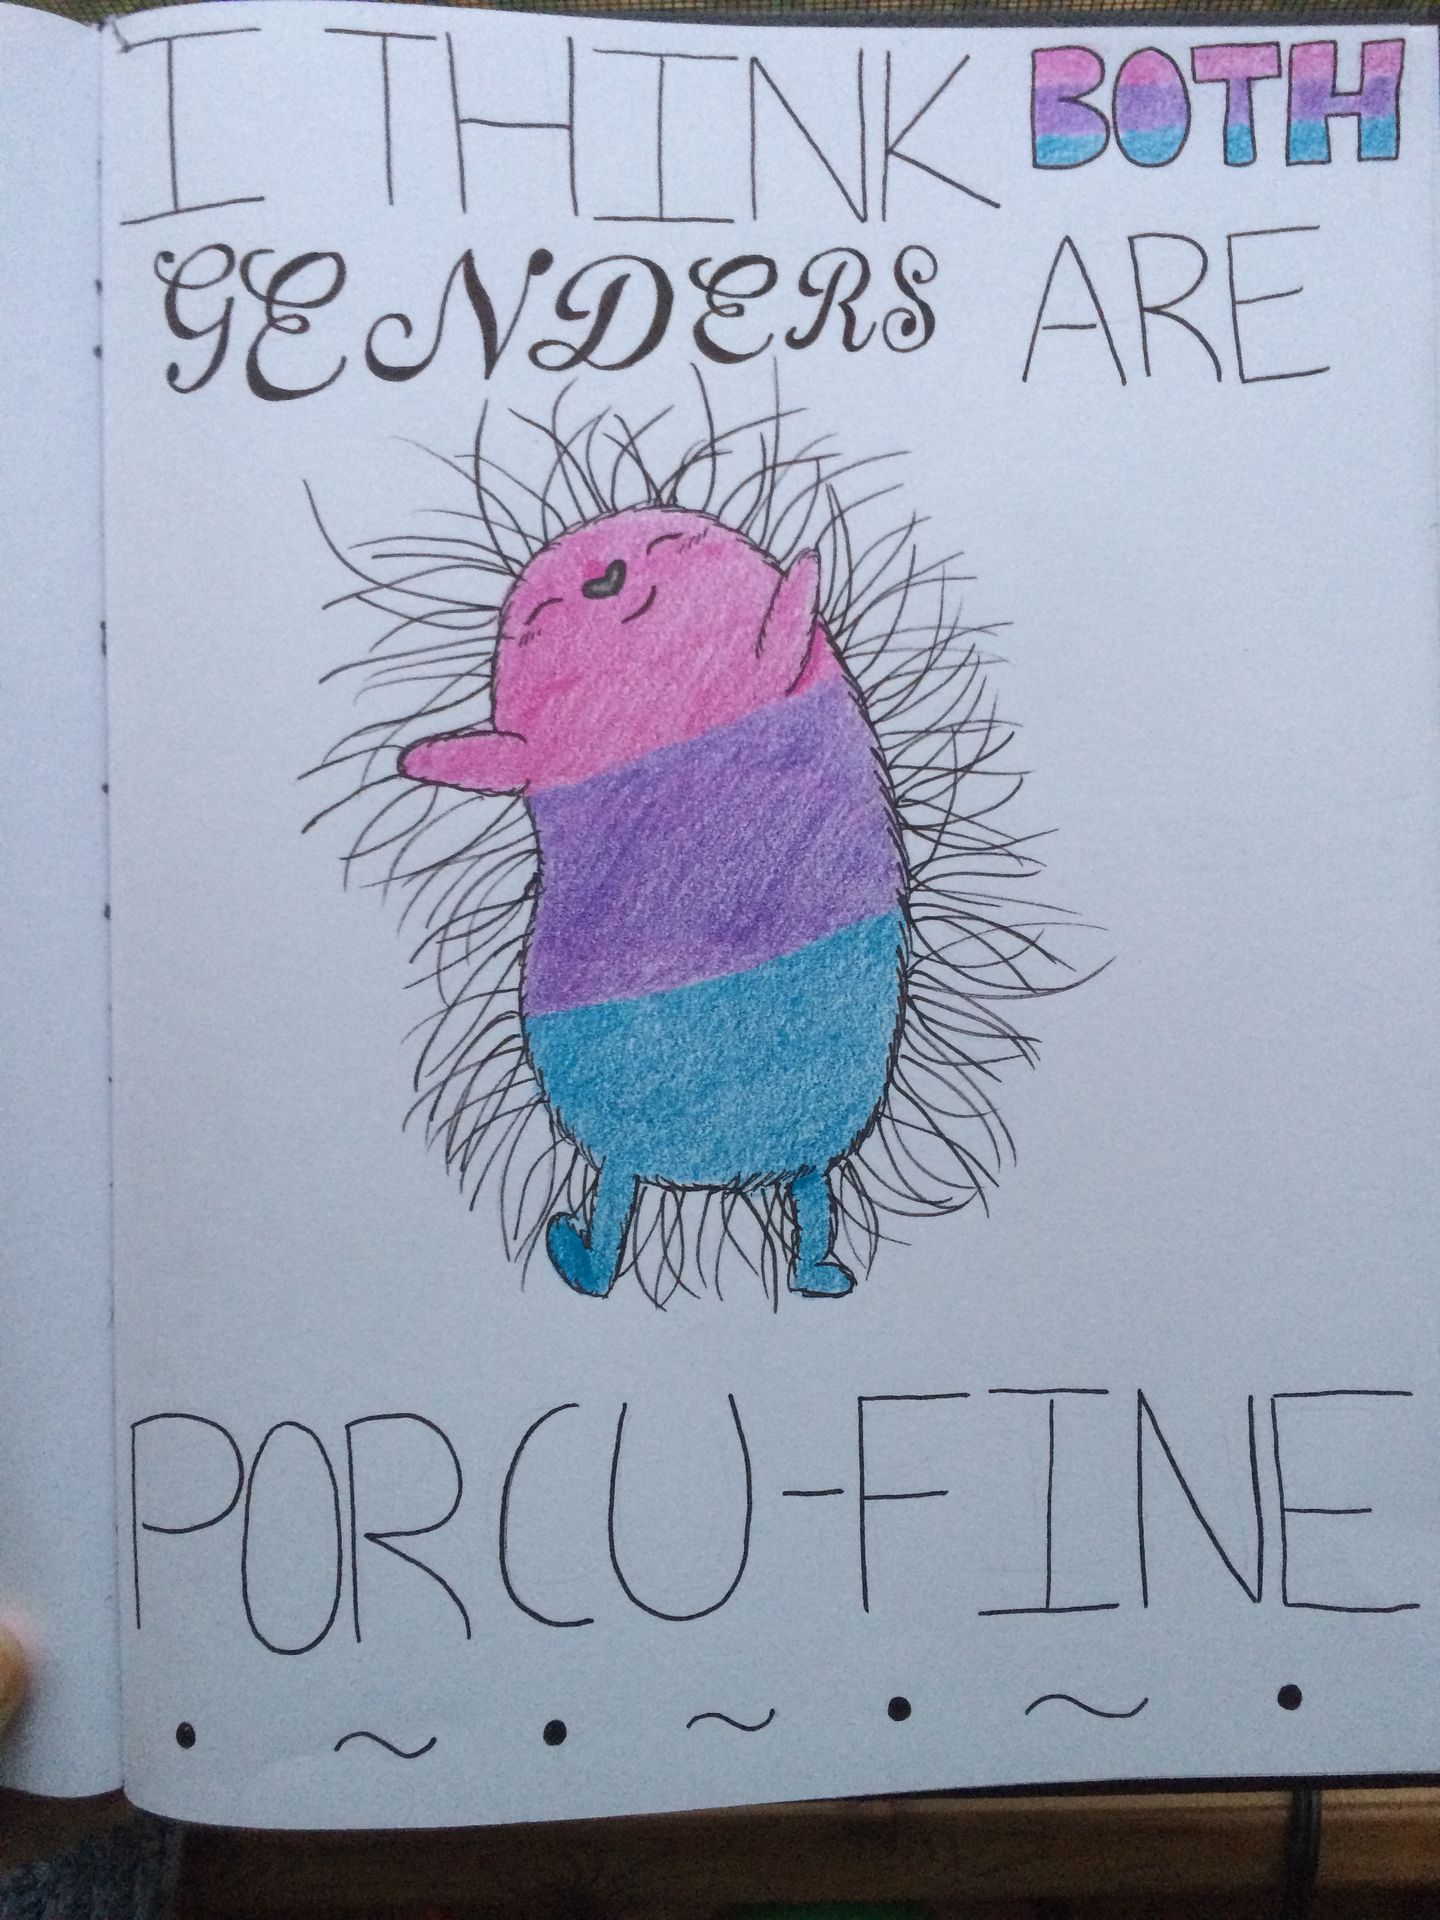 I THINK BOTH
GENDERS ARE
PORCU-FINE